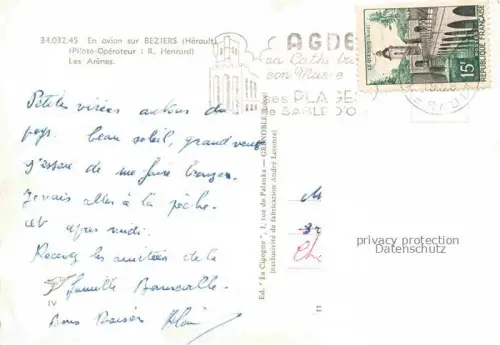 34.032.45 En avion sur BEZIERS (Hérault)
(Pilote-Opérateur : R. Henrard)
Les Arènes.
AGDE
sa Cathédrale
son Musée
ses PLAGES
de SABLE D'O
15F
REPUBLIQUE FRANÇAISE
LE QUESNOY
Petites virées autour du
pays. beau soleil, grand vent
J'essaie de me faire bronzer.
Je vais aller à la pêche
cet après midi.
Recevez les amitiés de la
famille
Bons Baisers Alain
IV
Ed. "La Cigogne", 1, rue de Palanka — GRENOBLE
(exclusivité de fabrication André Leconte)
M
privacy protection
Datenschutz